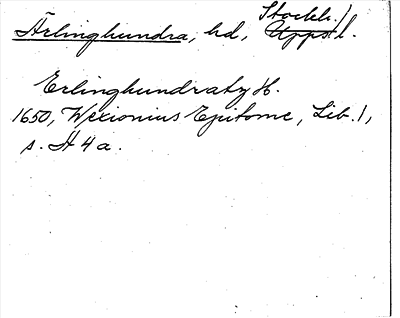 Stockh. l.
Ärlinghundra, hd, Upps. l.
Erlinghundraby H.
1650, Wexionius Epitome, Lib. 1,
s. H 4 a.